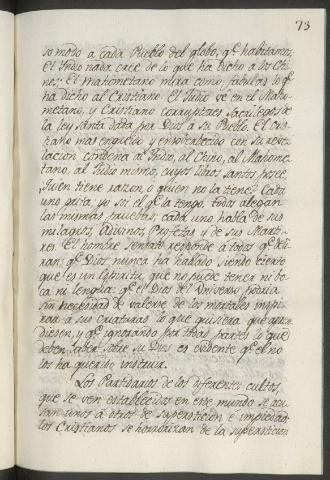 73
so modo a cada Pueblo del globo, qe. habitamos;
El Indio nada cree de lo que ha dicho a los Chi-
nes; El Mahometano mira como fabulas lo qe.
ha dicho al Cristiano. El Judio vè en el Maho-
metano, y Cristiano corruptores sacrilegos de
la ley santa dada por Dios à su Pueblo. El Cris-
tiano mas engreido y ensoberbecido con su reve-
lacion condena al Indio, al Chino, al Mahome-
tano, al Judio mismo, cuyos libros santos posee.
Quien tiene razon, o quien no la tiene? Cada
uno grita, yo soi el qe. la tengo, todos alegan
las mismas pruebas, cada uno habla de sus
milagros, Adivinos, Profetas y de sus Marti-
res. El hombre sensato responde à todos qe.
ran; qe. Dios nunca ha hablado siendo cierto
que es un Espiritu, que no puede tener ni bo-
ca ni lengua; qe. el Dios del Universo podria
sin necesidad de valerse de los mortales inspi-
rar à sus criaturas lo que quisiera que apren-
diesen, y qe. ignorando por todas partes lo que
deben saber sobre su Dios es evidente qe. el no
los ha querido instruir.
Los Partidarios de los diferentes cultos,
que se ven establecidos en este mundo se acu-
san unos à otros de supersticion è impiedad;
los Cristianos se horrorizan de la supersticion